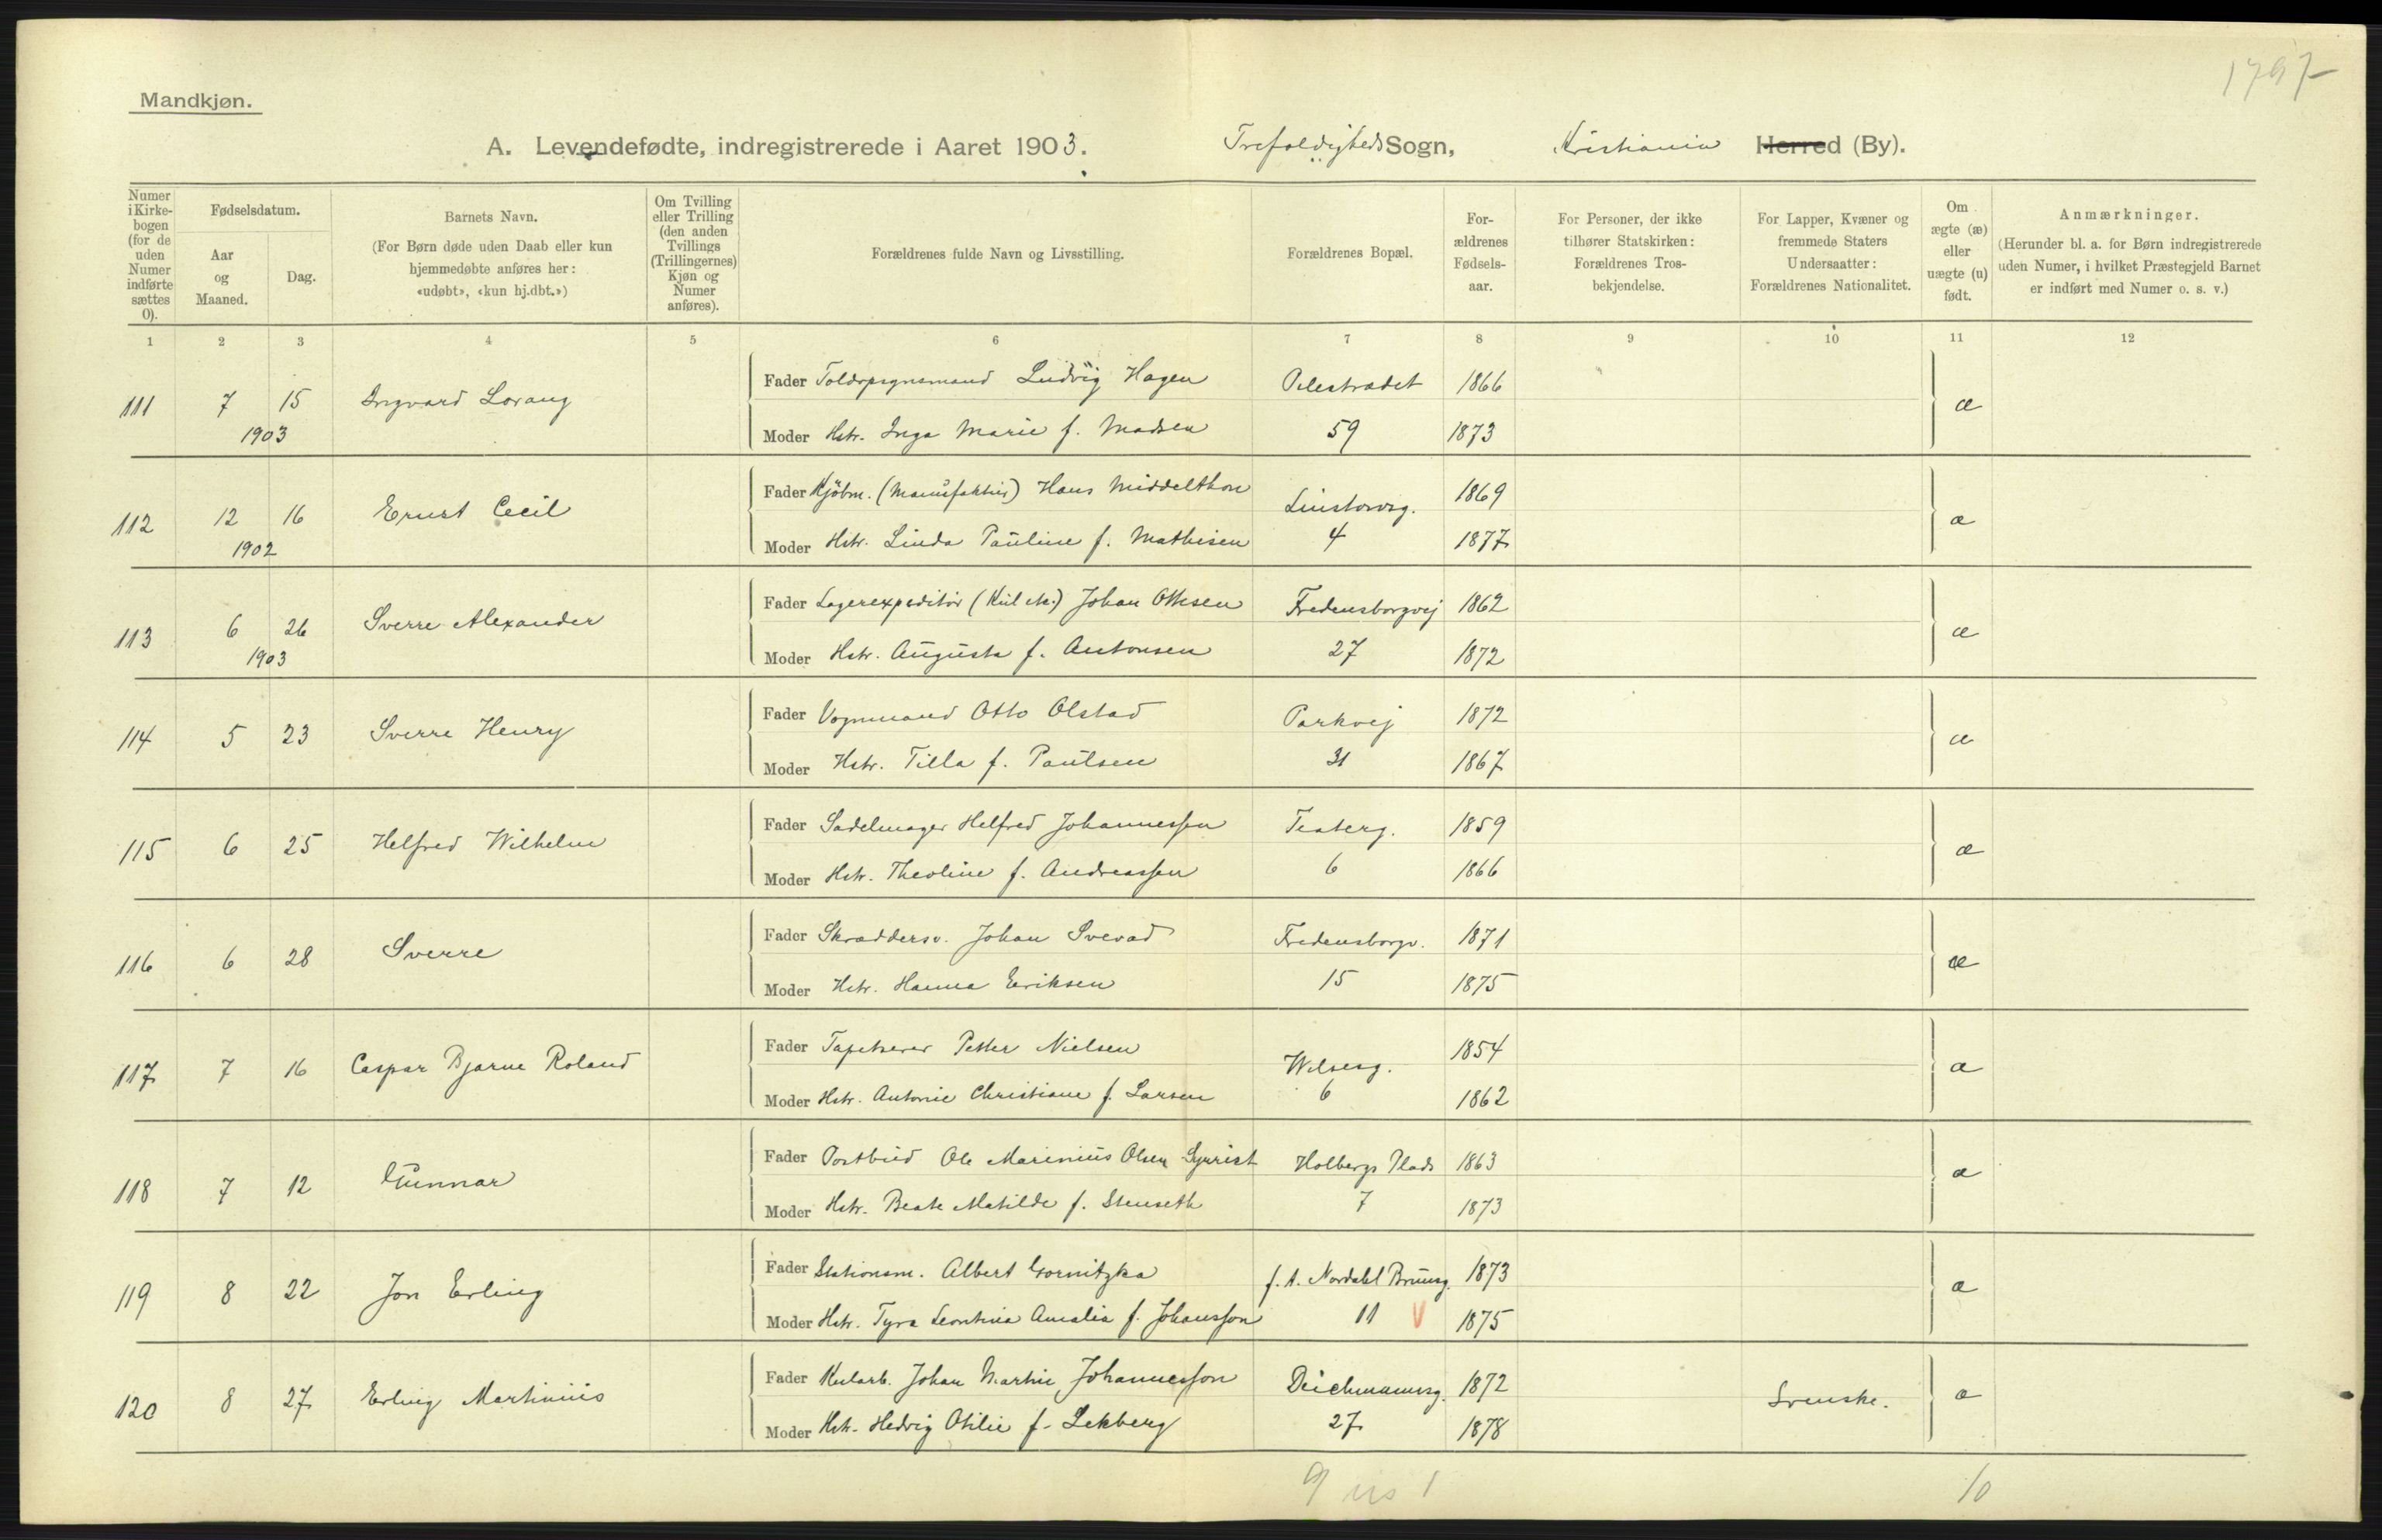 1797
Mandkjøn.
A. Levendefødte, indregistrerede i Aaret 1903. Trefoldigheds Sogn, Kristiania Herred (By).
Numer i Kirkebogen (for de uden Numer indførte sættes 0).
Fødselsdatum.
Aar og Maaned.
Dag.
Barnets Navn.
(For Børn døde uden Daab eller kun hjemmedøbte anføres her: «udøbt», «kun hj.dbt.»)
Om Tvilling eller Trilling (den anden Tvillings (Trillingernes) Kjøn og Numer anføres).
Forældrenes fulde Navn og Livsstilling.
Forældrenes Bopæl.
For-ældrenes Fødsels-aar.
For Personer, der ikke tilhører Statskirken: Forældrenes Tros-bekjendelse.
For Lapper, Kvæner og fremmede Staters Undersaatter: Forældrenes Nationalitet.
Om ægte (æ) eller uægte (u) født.
Anmærkninger.
(Herunder bl. a. for Børn indregistrerede uden Numer, i hvilket Præstegjeld Barnet er indført med Numer o. s. v.)
1 2 3 4 5 6 7 8 9 10 11 12
111 7 15 Ingvard Lorang Fader Toldopsynsmand Ludvig Hagen Pilestrædet 1866 æ
1903 Moder Hstr. Inga Marie f. Madsen 59 1873
112 12 16 Ernst Cecil Fader Kjöbm. (Manufaktur) Hans Middelthon Linstowsg. 1869 æ
1902 Moder Hstr. Linda Pauline f. Mathisen 4 1877
113 6 26 Sverre Alexander Fader Lagerexpeditör (Kul etc.) Johan Ottesen Fredensborgvej 1862 æ
1903 Moder Hstr. Augusta f. Antonsen 27 1872
114 5 23 Sverre Henry Fader Vognmand Otto Olstad Parkvej 1872 æ
Moder Hstr. Tilla f. Paulsen 31 1867
115 6 25 Helfred Wilhelm Fader Sadelmager Helfred Johannessen Teaterg. 1859 æ
Moder Hstr. Theoline f. Andreassen 6 1866
116 6 28 Sverre Fader Skræddersv. Johan Svevad Fredensborgv. 1871 æ
Moder Hstr. Hanna Eriksen 15 1875
117 7 16 Caspar Bjarne Roland Fader Tapetserer Petter Nielsen Wilsesg. 1854 æ
Moder Hstr. Antonie Christiane f. Larsen 6 1862
118 7 12 Gunnar Fader Postbud Ole Marinius Olsen Holbergs Plads 1863 æ
Moder Hstr. Beate Matilde f. Stenseth 7 1873
119 8 22 Jon Erling Fader Stationsm. Albert Gornitzka f. t. Nordahl Brunsg. 1873 æ
Moder Hstr. Tyra Leontina Amalia f. Johansson 11 V 1875
120 8 27 Erling Martinius Fader Kularb. Johan Martin Johannesson Deichmannsg. 1872 Svenske. æ
Moder Hstr. Hedvig Otilie f. Lekberg 27 1878
9 us 1 10